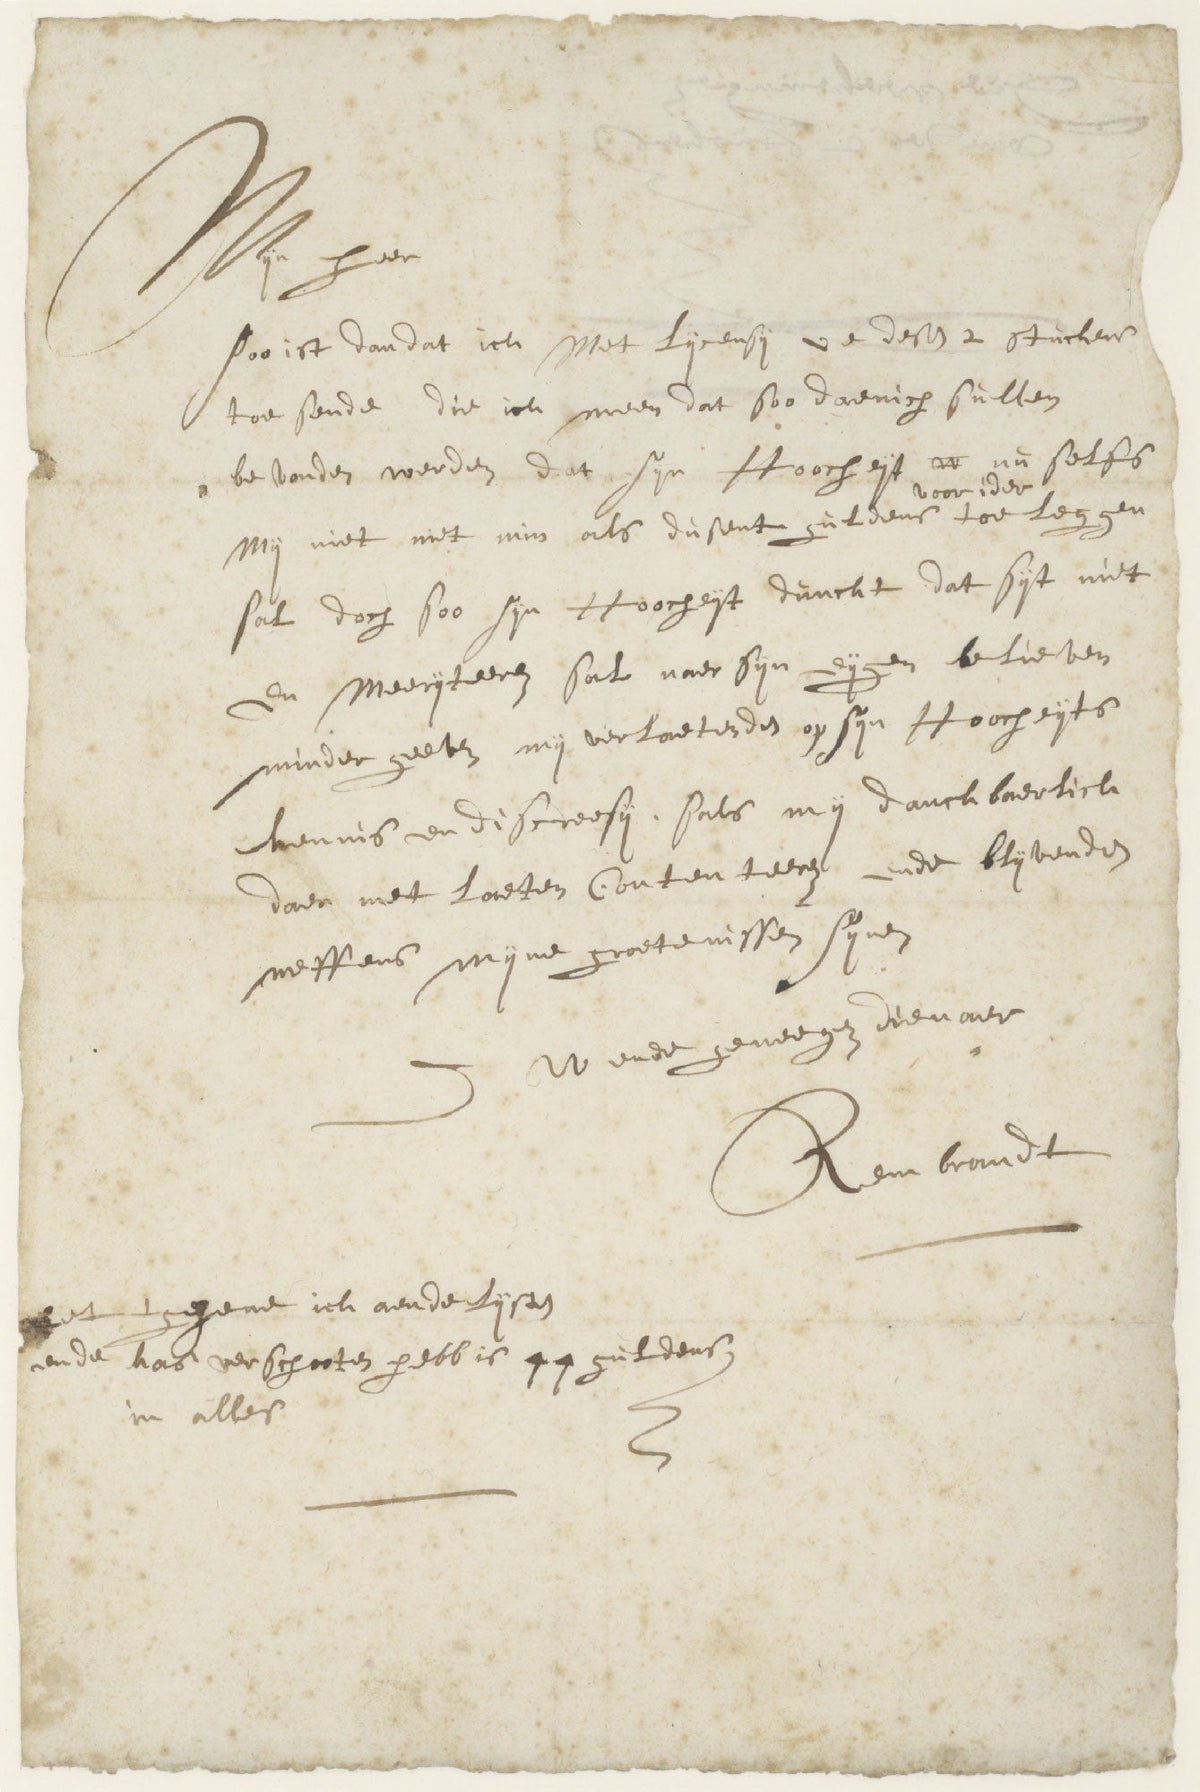 Mijn heer
soo ist dan dat ick Met lijcensij u e dese 2 stucken
toe sende die ick meen dat soo daenich sullen
bevonden werden dat sijn Hoocheijt nu selfs
voor ider
Mij niet niet min als dusent guldens toe leggen
sal doch soo sijn Hoocheijt dunckt dat sijt niet
en Meerijteeren sal naer sijn eijgen believen
minder geeven mij verlaetenden op sijn Hoocheijts
kennis en discreesij. sals mij danckbaerlick
daer met laeten Contenteeren ende blijvenden
neffens mijne groetenissen sijnen
W ende geneegen dienaer
Rembrandt
Het tgeene ick aende lijsten
ende kas verschooten hebb is 44 guldens
in alles